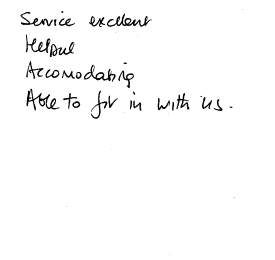 Service excellent
Helpful
Accomodating
Able to fit in with us.